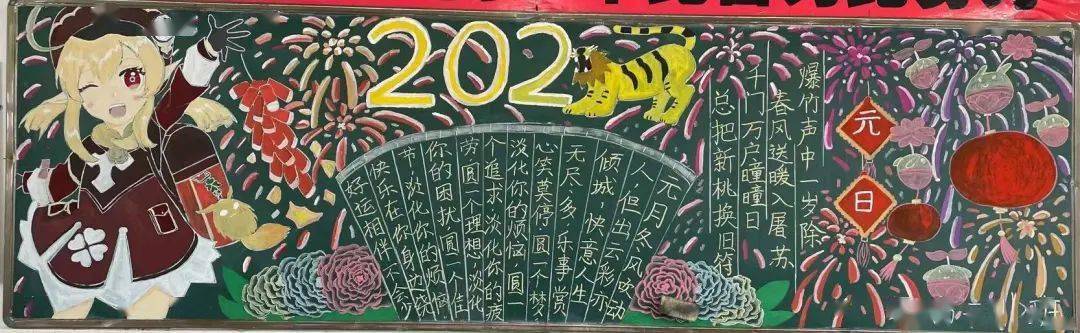 202
元
日
爆竹声中一岁除
春风送暖入屠苏
千门万户曈曈日
总把新桃换旧符
元月冬风吹动
人,但出云彩亦
倾城 快意人生
无尽多,乐事赏
心笑莫停 圆一个梦
淡化你的烦恼 圆一
个追求 淡化你的疲
劳 圆一个理想 淡化
你的困扰 圆一个佳
节,淡化你的烦恼
快乐在你身边绕
好运相伴不会少